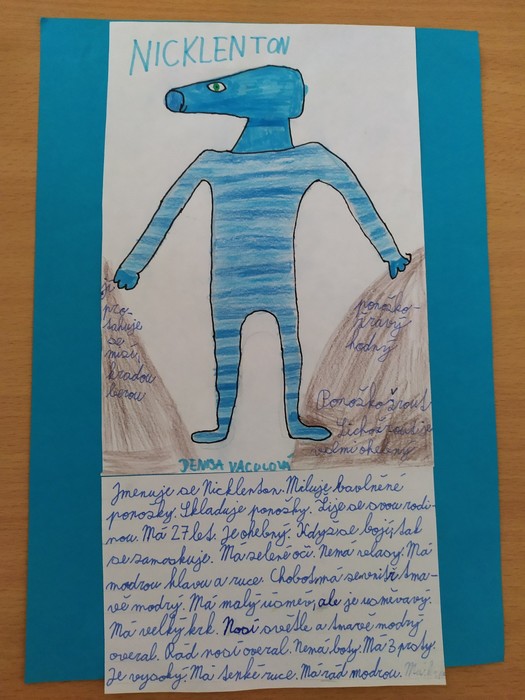 NICKLENTON
protahuje
se
mizí,
kradou
berou
ponožko-
žravý
hodný
Ponožkožrout
Lichožrout je
velmi ohebný
DENISA VACULOVÁ
Jmenuje se Nicklenton. Miluje bavlněné
ponožky. Skladuje ponožky. Žije se svou rodi-
nou. Má 27 let. Je ohebný. Když se bojí, tak
se zamaskuje. Má zelené oči. Nemá vlasy. Má
modrou hlavu a ruce. Chobot má zevnitř tma-
vě modrý. Má malý úsměv, ale je usměvavý.
Má velký krk. Nosí světle a tmavě modrý
overal. Rád nosí overal. Nemá boty. Má 3 prsty.
Je vysoký. Má tenké ruce. Má rád modrou.